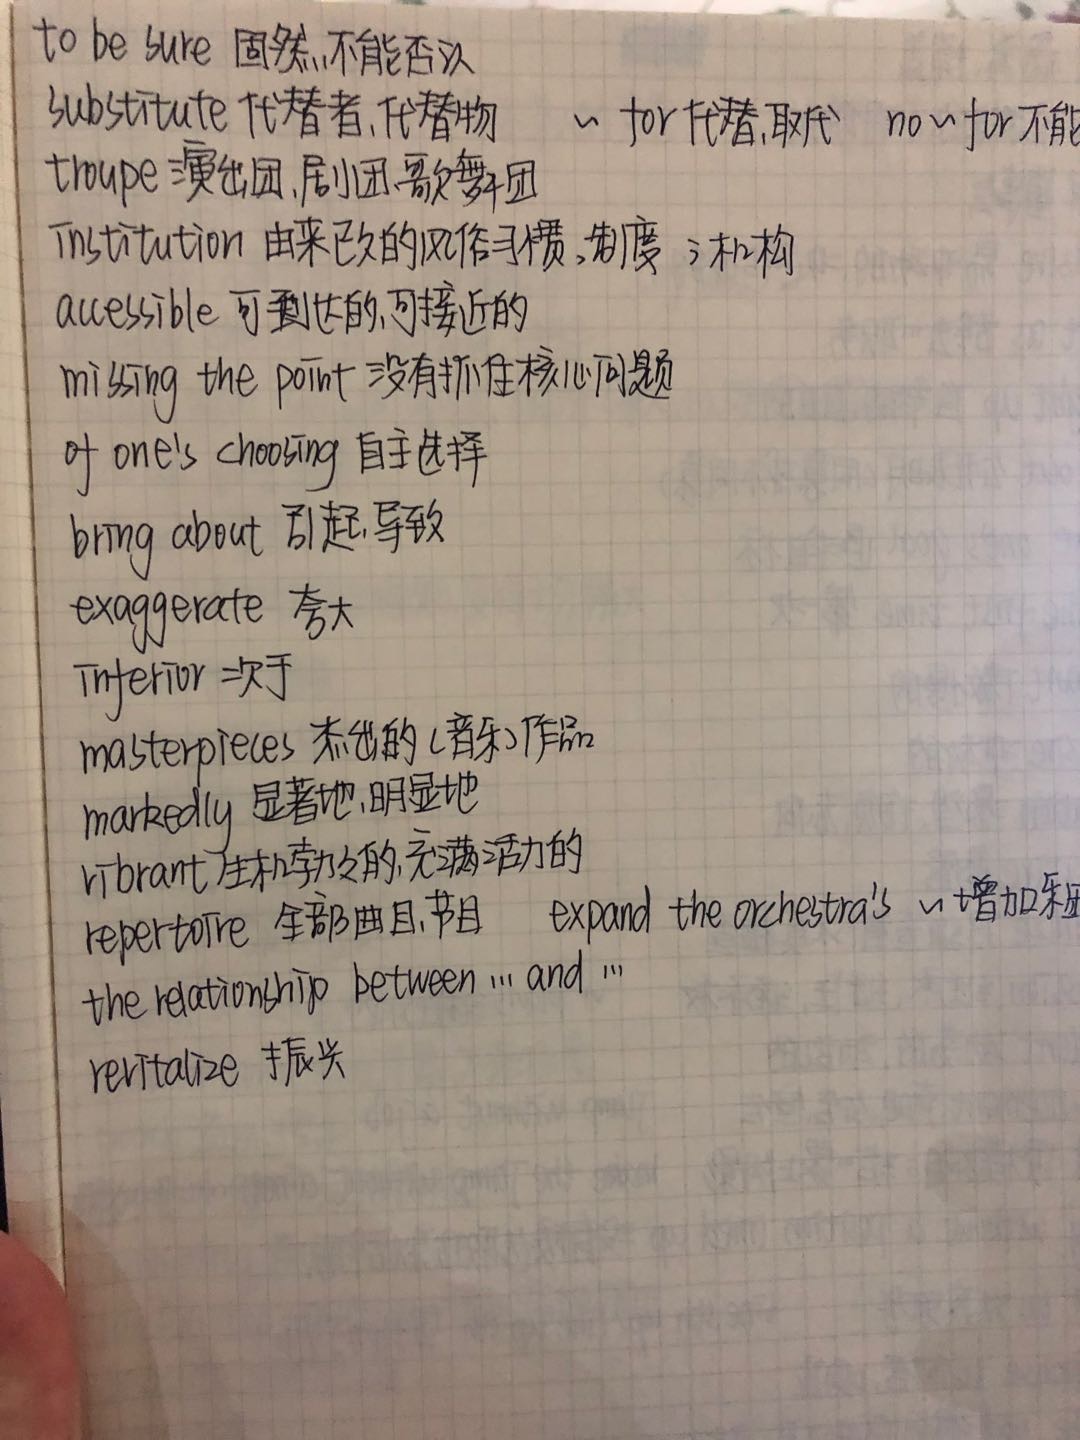 to be sure 固然,不能否认
substitute 代替者,代替物 ~ for 代替,取代 no ~ for 不能
troupe 演出团,剧团,歌舞团
institution 由来已久的风俗习惯,制度;机构
accessible 可到达的,可接近的
missing the point 没有抓住核心问题
of one's choosing 自主选择
bring about 引起,导致
exaggerate 夸大
inferior 次于
masterpieces 杰出的(音乐)作品
markedly 显著地,明显地
vibrant 生机勃勃的,充满活力的
repertoire 全部曲目,节目 expand the orchestra's ~ 增加乐团
the relationship between … and …
revitalize 振兴